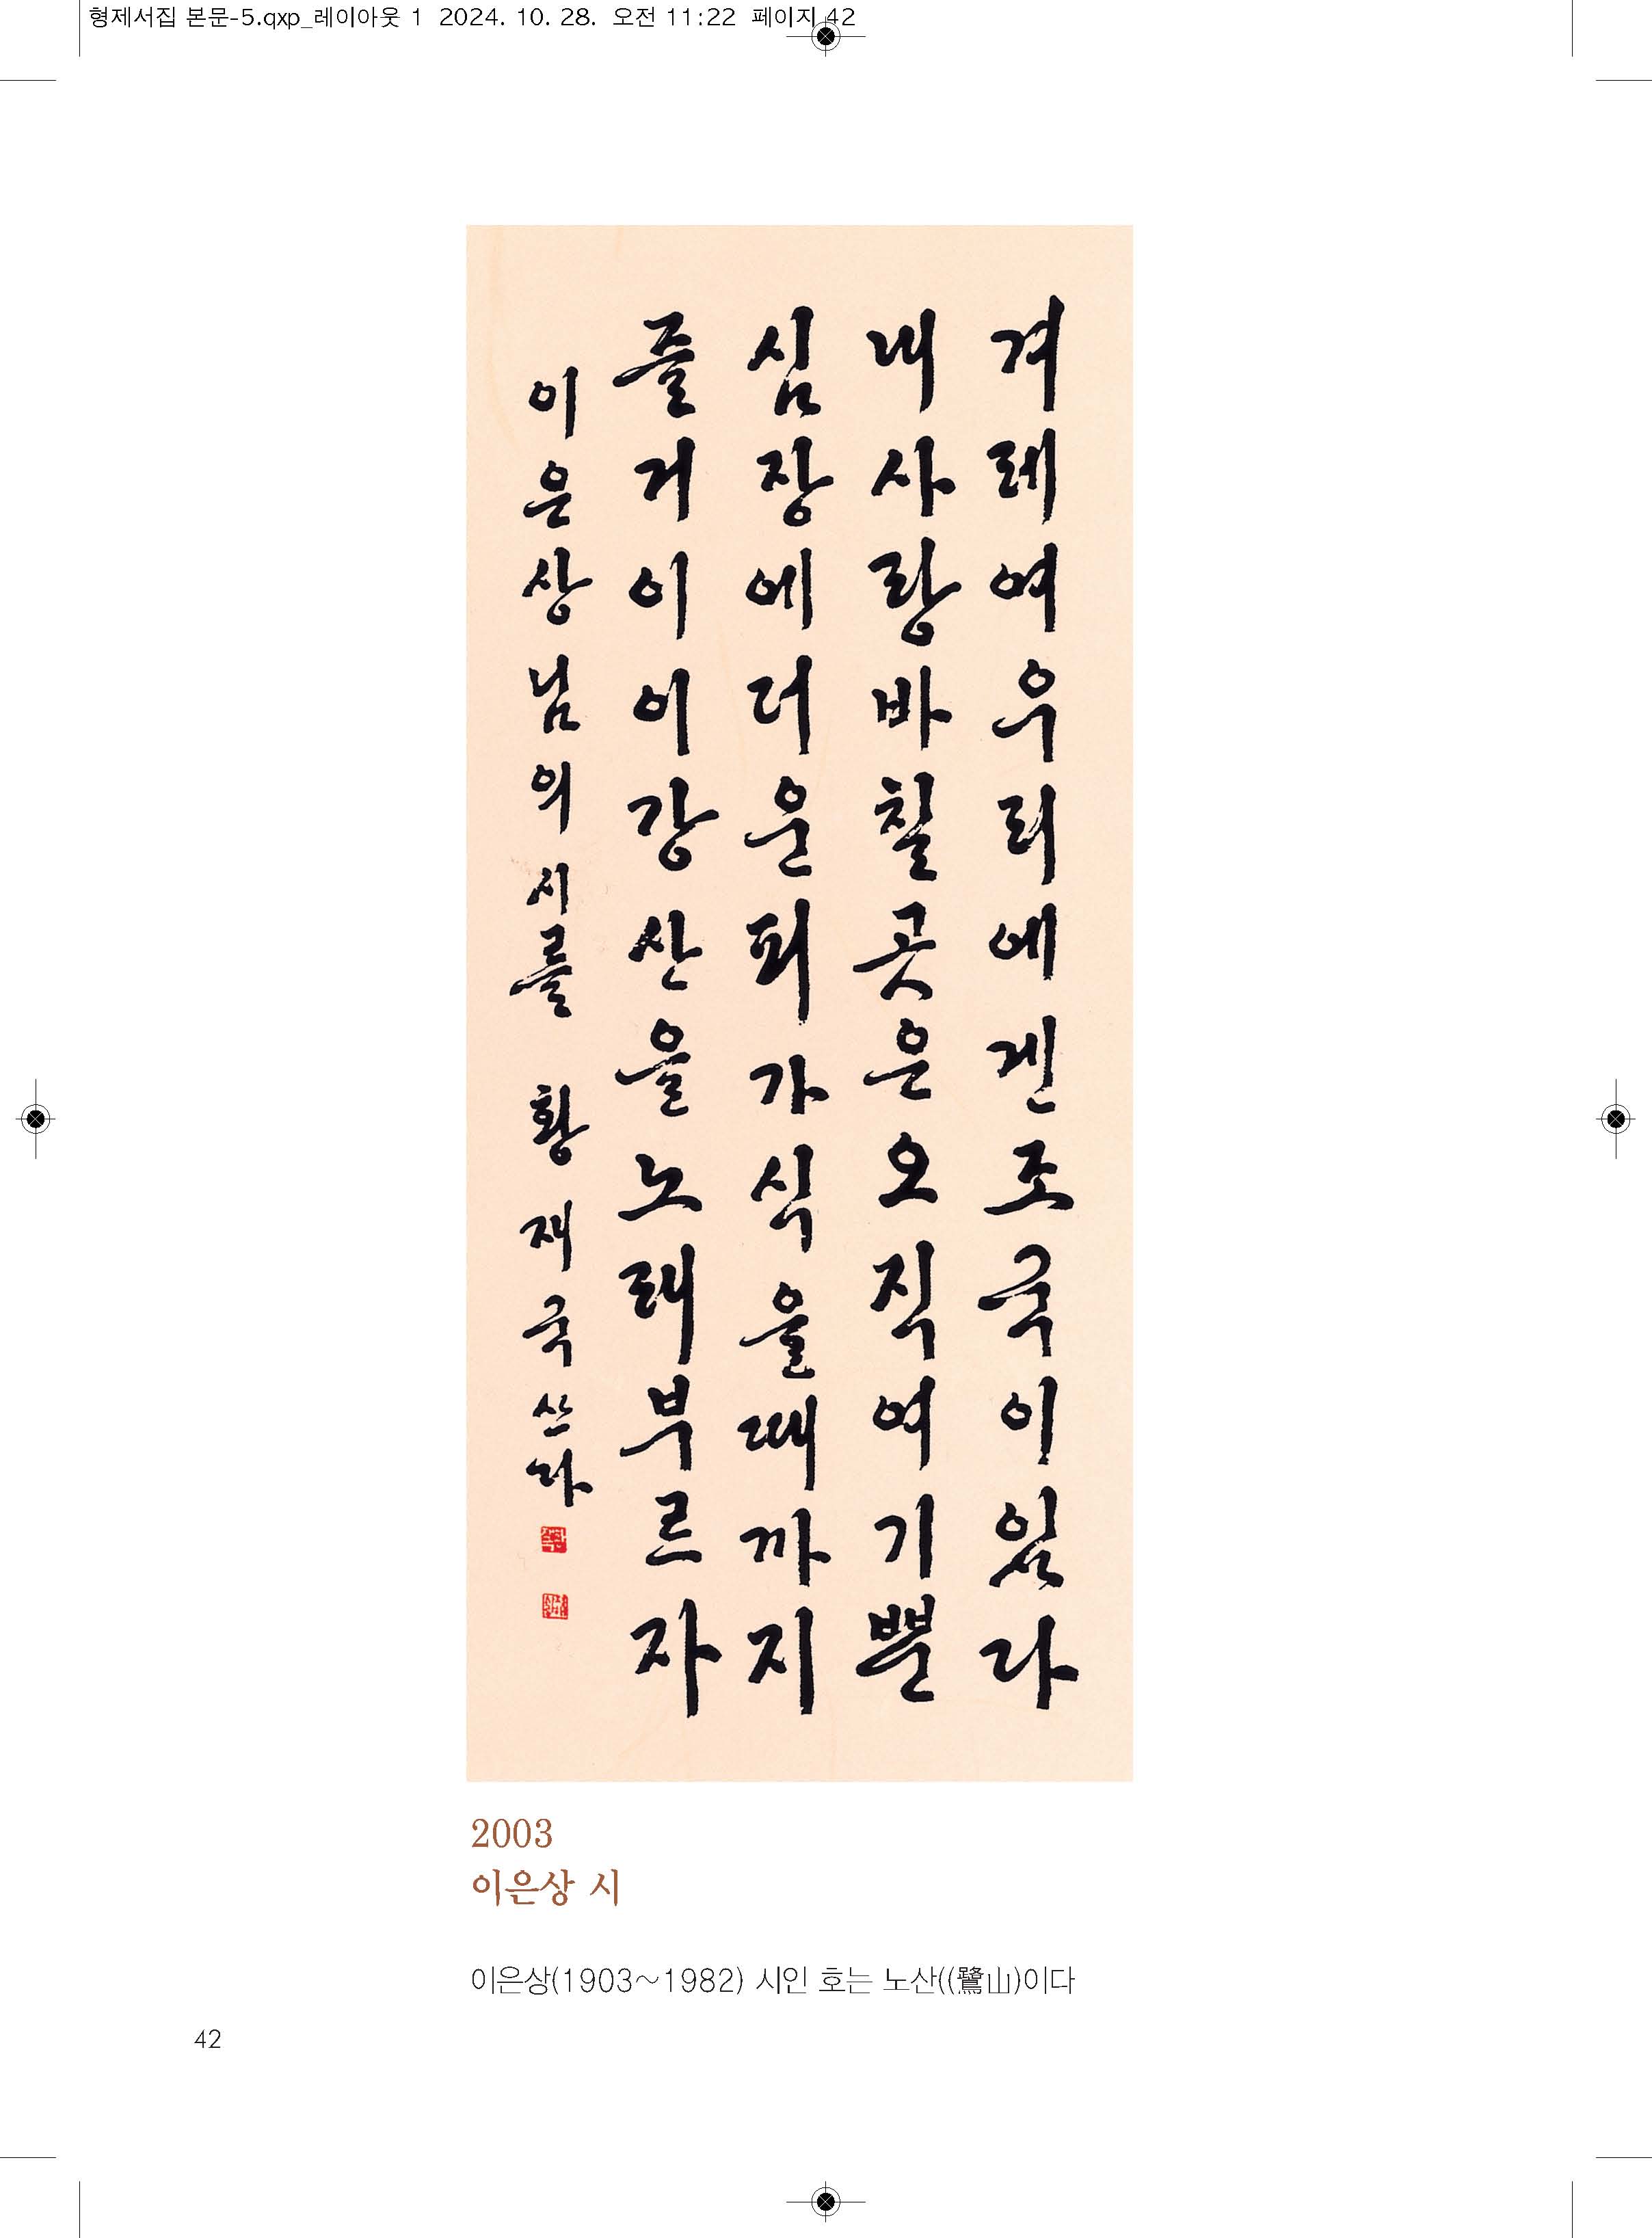 형제서집 본문-5.qxp_레이아웃 1  2024. 10. 28.  오전 11:22  페이지 42
겨레여우리에겐조국이있다
내사랑바칠곳은오직여기뿐
심장에더운피가식을때까지
즐거이이강산을노래부르자
이은상님의시를 황재국쓰다
2003
이은상 시
이은상(1903~1982) 시인 호는 노산((鷺山)이다
42